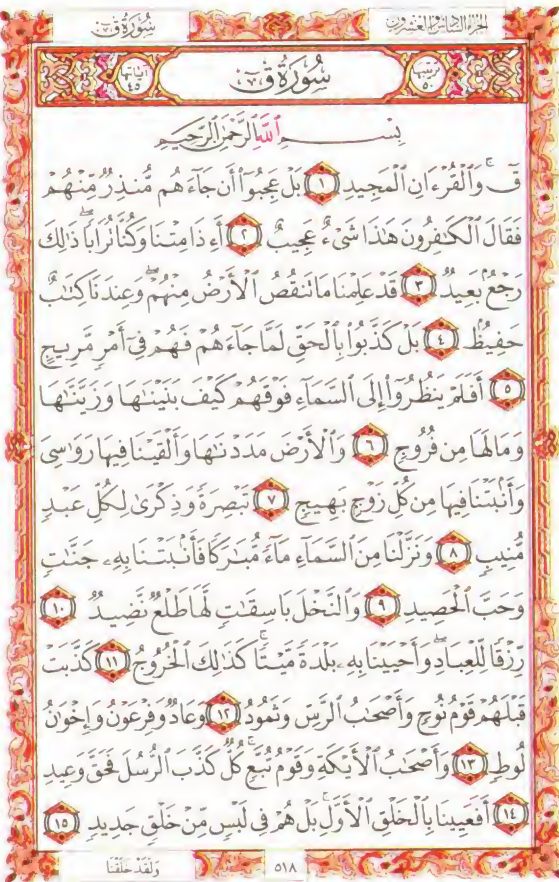 سُورَةُ قٓ
الجزء السادس والعشرون
آيَاتُهَا ٤٥
سُورَةُ قٓ
تَرْتِيبُهَا ٥٠
بِسْمِ ٱللَّهِ ٱلرَّحْمَٰنِ ٱلرَّحِيمِ
قٓ ۚ وَٱلْقُرْءَانِ ٱلْمَجِيدِ ١ بَلْ عَجِبُوٓا۟ أَن جَآءَهُم مُّنذِرٌ مِّنْهُمْ
فَقَالَ ٱلْكَٰفِرُونَ هَٰذَا شَىْءٌ عَجِيبٌ ٢ أَءِذَا مِتْنَا وَكُنَّا تُرَابًا ۖ ذَٰلِكَ
رَجْعٌۢ بَعِيدٌ ٣ قَدْ عَلِمْنَا مَا تَنقُصُ ٱلْأَرْضُ مِنْهُمْ ۖ وَعِندَنَا كِتَٰبٌ
حَفِيظٌۢ ٤ بَلْ كَذَّبُوا۟ بِٱلْحَقِّ لَمَّا جَآءَهُمْ فَهُمْ فِىٓ أَمْرٍ مَّرِيجٍ
٥ أَفَلَمْ يَنظُرُوٓا۟ إِلَى ٱلسَّمَآءِ فَوْقَهُمْ كَيْفَ بَنَيْنَٰهَا وَزَيَّنَّٰهَا
وَمَا لَهَا مِن فُرُوجٍ ٦ وَٱلْأَرْضَ مَدَدْنَٰهَا وَأَلْقَيْنَا فِيهَا رَوَٰسِىَ
وَأَنۢبَتْنَا فِيهَا مِن كُلِّ زَوْجٍۭ بَهِيجٍ ٧ تَبْصِرَةً وَذِكْرَىٰ لِكُلِّ عَبْدٍ
مُّنِيبٍ ٨ وَنَزَّلْنَا مِنَ ٱلسَّمَآءِ مَآءً مُّبَٰرَكًا فَأَنۢبَتْنَا بِهِۦ جَنَّٰتٍ
وَحَبَّ ٱلْحَصِيدِ ٩ وَٱلنَّخْلَ بَاسِقَٰتٍ لَّهَا طَلْعٌ نَّضِيدٌ ١٠
رِّزْقًا لِّلْعِبَادِ ۖ وَأَحْيَيْنَا بِهِۦ بَلْدَةً مَّيْتًا ۚ كَذَٰلِكَ ٱلْخُرُوجُ ١١ كَذَّبَتْ
قَبْلَهُمْ قَوْمُ نُوحٍ وَأَصْحَٰبُ ٱلرَّسِّ وَثَمُودُ ١٢ وَعَادٌ وَفِرْعَوْنُ وَإِخْوَٰنُ
لُوطٍ ١٣ وَأَصْحَٰبُ ٱلْأَيْكَةِ وَقَوْمُ تُبَّعٍ ۚ كُلٌّ كَذَّبَ ٱلرُّسُلَ فَحَقَّ وَعِيدِ
١٤ أَفَعَيِينَا بِٱلْخَلْقِ ٱلْأَوَّلِ ۚ بَلْ هُمْ فِى لَبْسٍ مِّنْ خَلْقٍ جَدِيدٍ ١٥
وَلَقَدْ خَلَقْنَا
٥١٨